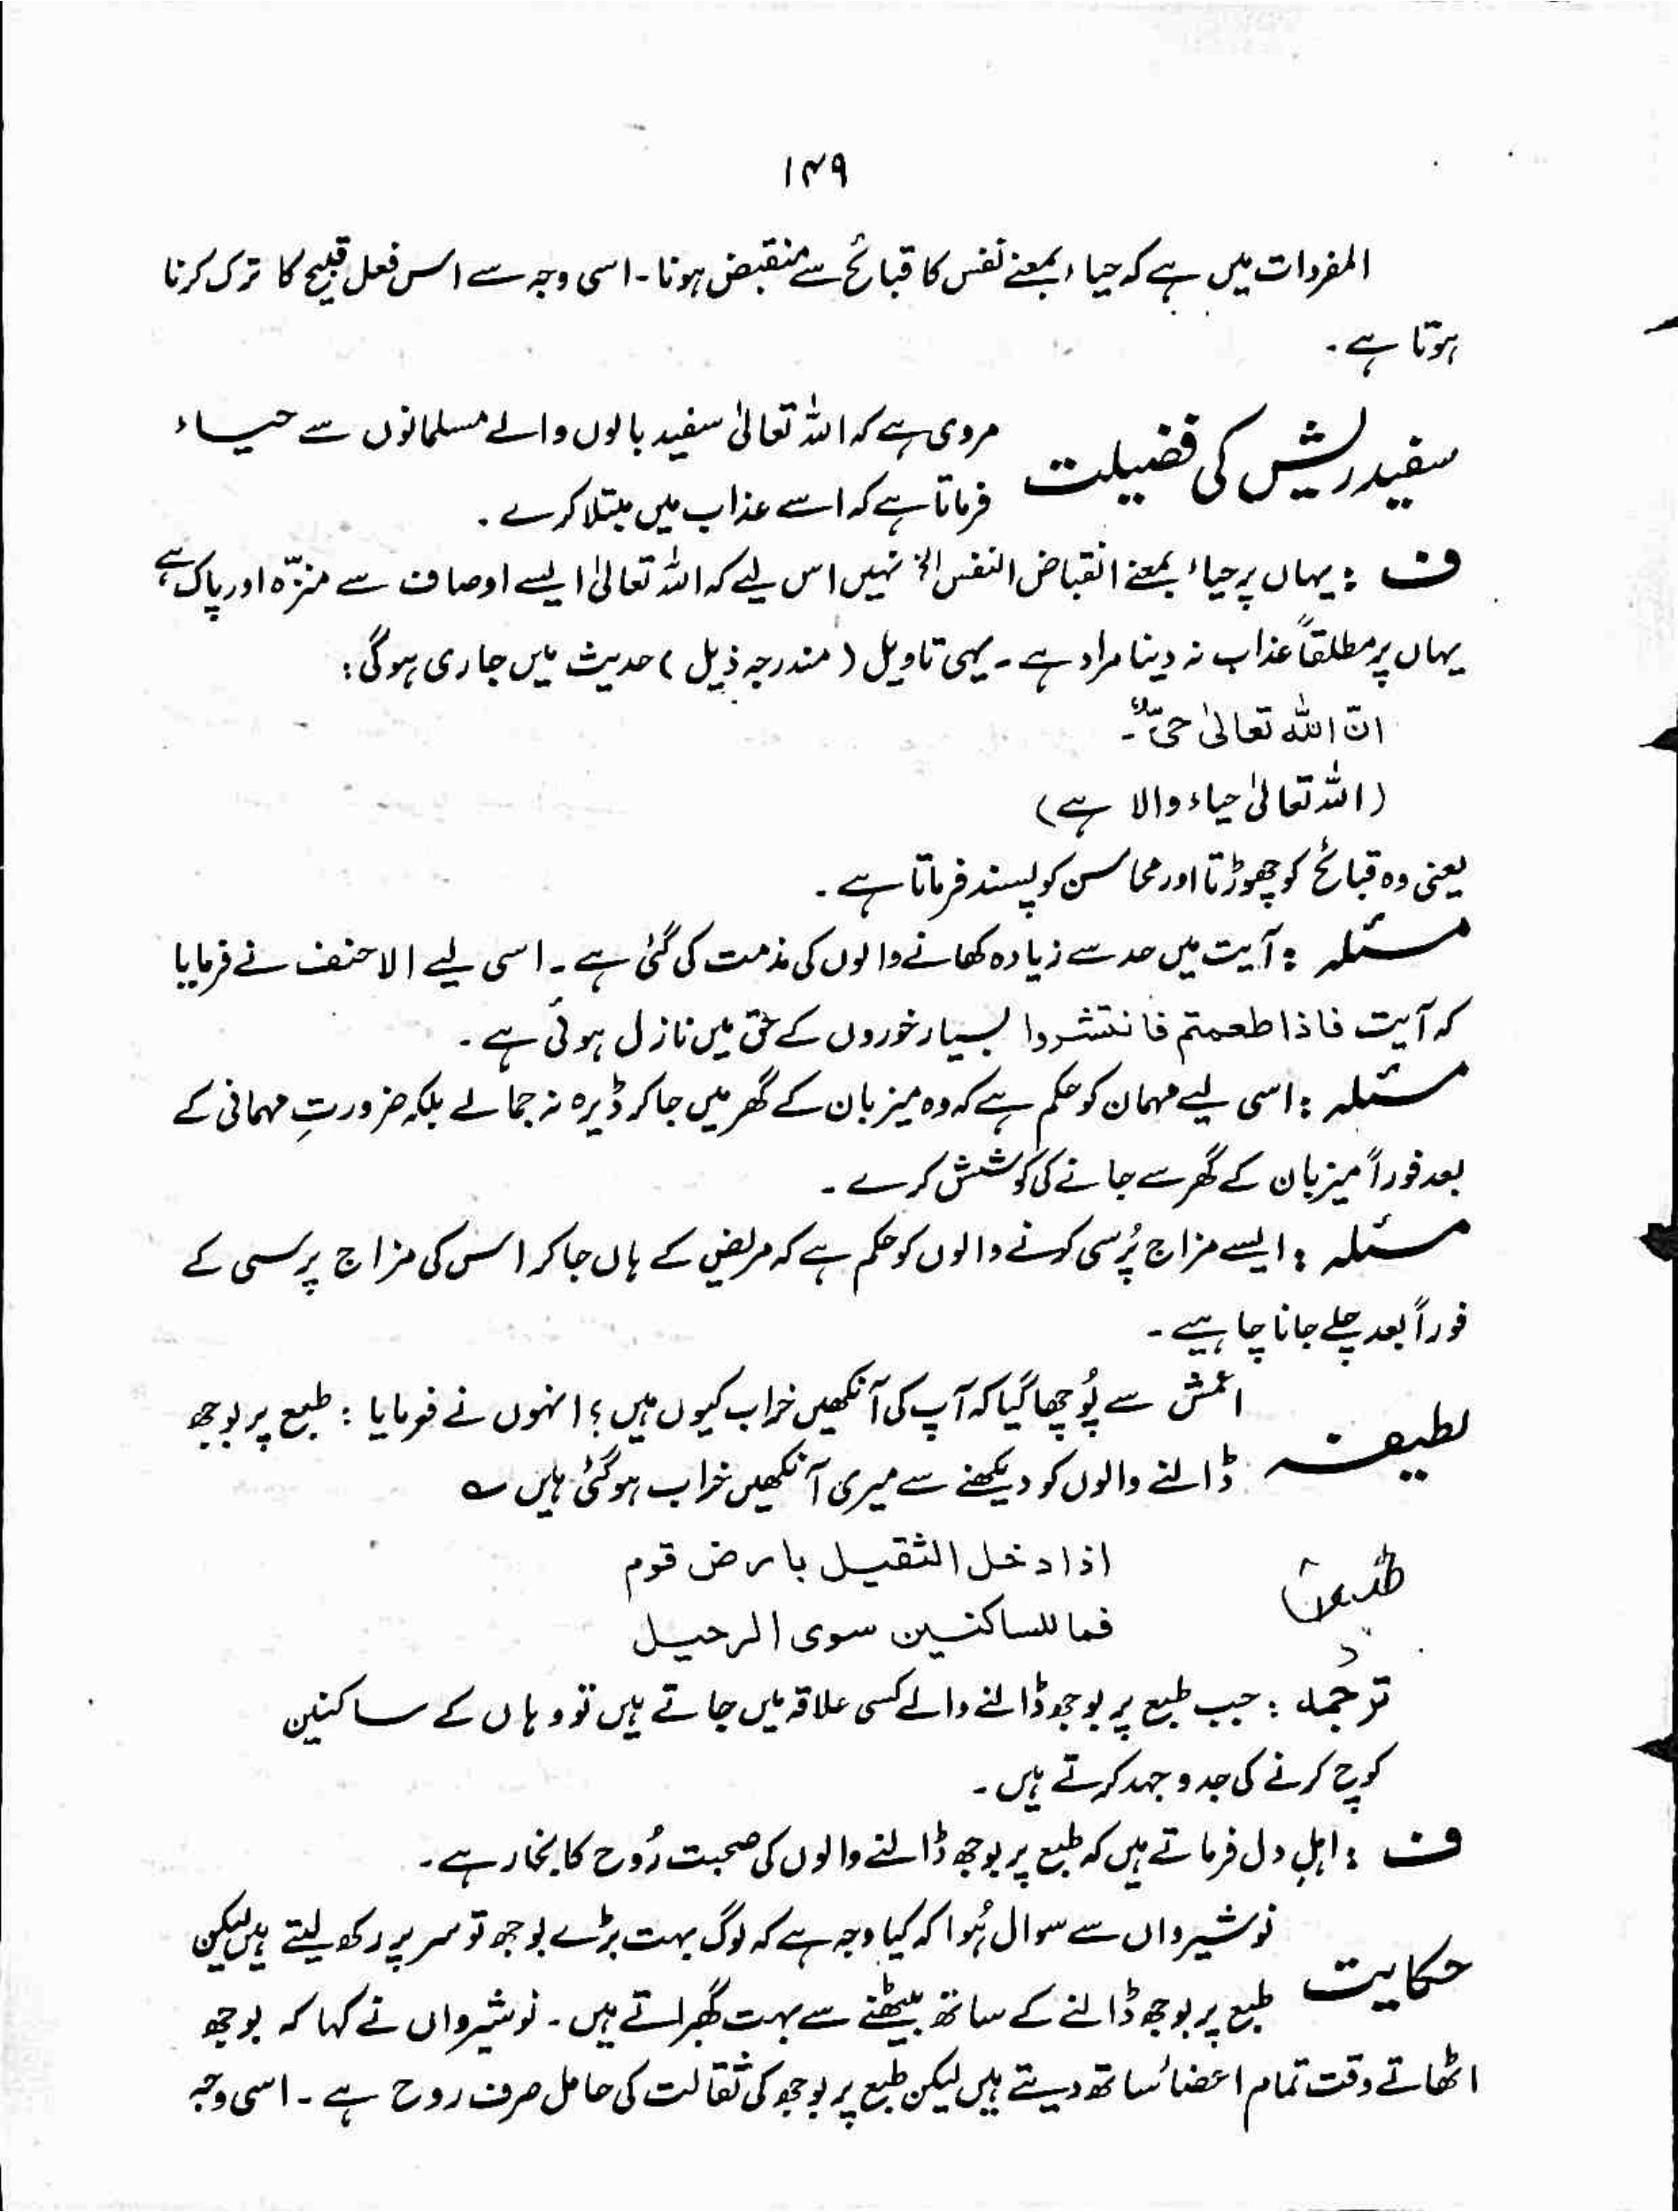 ۱۴۹
المفردات میں ہے کہ حیاء بمعنے نفس کا قبائح سے منقبض ہونا۔ اسی وجہ سے اس فعل قبیح کا ترک کرنا
ہوتا ہے۔
سفید ریش کی فضیلت
مروی ہے کہ اللہ تعالیٰ سفید بالوں والے مسلمانوں سے حیاء
فرماتا ہے کہ اسے عذاب میں مبتلا کرے۔
ف : یہاں پر حیاء بمعنے انقباض النفس الخ نہیں اس لیے کہ اللہ تعالیٰ ایسے اوصاف سے منزّہ اور پاک ہے
یہاں پر مطلقاً عذاب نہ دینا مراد ہے۔ یہی تاویل (مندرجہ ذیل) حدیث میں جاری ہوگی:
انّ اللہ تعالیٰ حیّ۔
(اللہ تعالیٰ حیاء والا ہے)
یعنی وہ قبائح کو چھوڑتا اور محاسن کو پسند فرماتا ہے۔
مسئلہ : آیت میں حد سے زیادہ کھانے والوں کی مذمت کی گئی ہے۔ اسی لیے الاحنف نے فرمایا
کہ آیت فاذا طعمتم فانتشروا بسیار خوروں کے حق میں نازل ہوئی ہے۔
مسئلہ : اسی لیے مہمان کو حکم ہے کہ وہ میزبان کے گھر میں جاکر ڈیرہ نہ جمالے بلکہ ضرورتِ مہمانی کے
بعد فوراً میزبان کے گھر سے جانے کی کوشش کرے۔
مسئلہ : ایسے مزاج پُرسی کرنے والوں کو حکم ہے کہ مریض کے ہاں جاکر اس کی مزاج پرسی کے
فوراً بعد چلے جانا چاہیے۔
لطیفہ
اعمش سے پُوچھا گیا کہ آپ کی آنکھیں خراب کیوں ہیں؟ انہوں نے فرمایا : طبع پر بوجھ
ڈالنے والوں کو دیکھنے سے میری آنکھیں خراب ہوگئی ہیں ؎
اذا دخل الثقیل بارض قوم
فما للساکنین سوی الرحیل
ترجمہ : جب طبع پر بوجھ ڈالنے والے کسی علاقہ میں جاتے ہیں تو وہاں کے ساکنین
کوچ کرنے کی جدوجہد کرتے ہیں۔
ف : اہلِ دل فرماتے ہیں کہ طبع پر بوجھ ڈالنے والوں کی صحبت رُوح کا بخار ہے۔
حکایت
نوشیرواں سے سوال ہُوا کہ کیا وجہ ہے کہ لوگ بہت بڑے بوجھ تو سر پر رکھ لیتے ہیں لیکن
طبع پر بوجھ ڈالنے کے ساتھ بیٹھنے سے بہت گھبراتے ہیں۔ نوشیرواں نے کہا کہ بوجھ
اٹھاتے وقت تمام اعضاء ساتھ دیتے ہیں لیکن طبع پر بوجھ کی ثقالت کی حامل صرف روح ہے۔ اسی وجہ